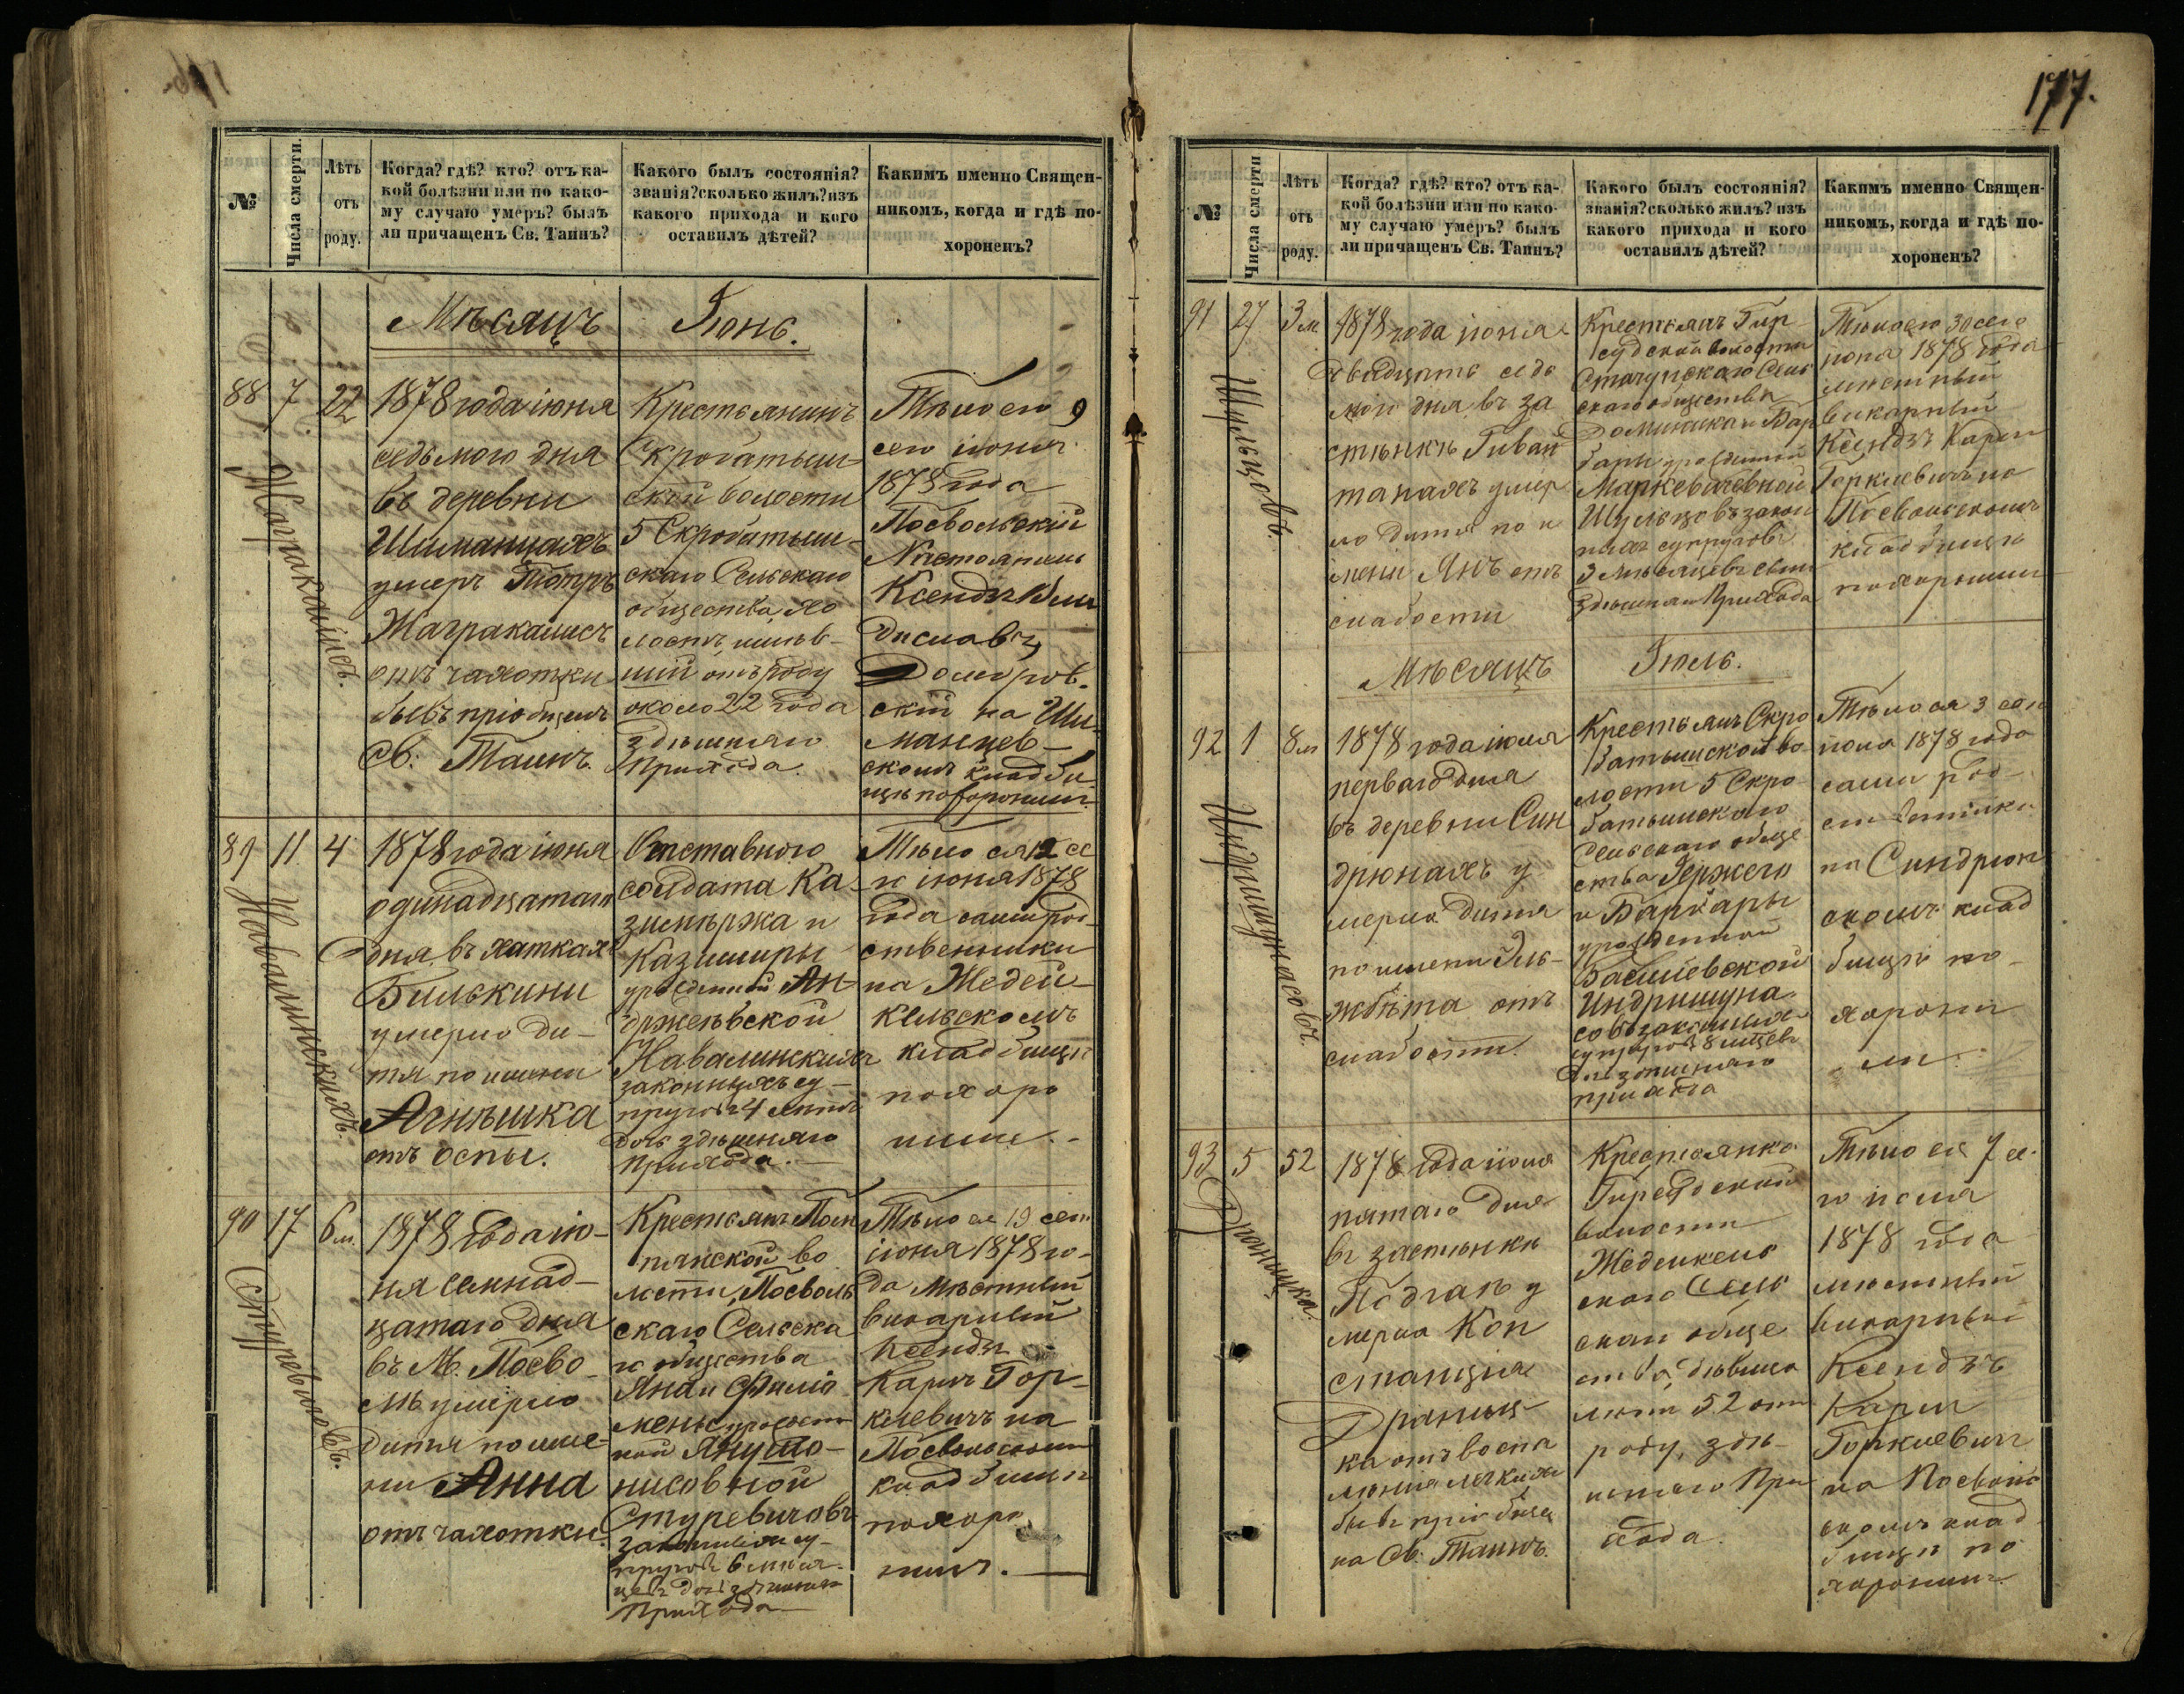 177.
№
Числа смерти.
Лѣтъ
отъ
роду.
Когда? гдѣ? кто? отъ ка-
кой болѣзни или по како-
му случаю умеръ? былъ
ли причащенъ Св. Таинъ?
Какого былъ состоянія?
званія? сколько жилъ? изъ
какого прихода и кого
оставилъ дѣтей?
Какимъ именно Священ-
никомъ, когда и гдѣ по-
хороненъ?
Мѣсяцъ Іюнь.
88
7
22
1878 года іюня
седьмого дня
въ деревни
Шиманцахъ
умеръ Петръ
отъ чахотки
бывъ пріобщенъ
Св. Таинъ.
Крестьянинъ
Скробатыш-
ской волости
5 Скробатыш-
скаго Сельскаго
общества, хо
лостъ, имѣв-
шій отъ роду
около 22 года
здѣшняго
Прихода.
Тѣло его 9
сего іюня
1878 года
Посвольскій
Настоятель
Ксендзъ Вла
диславъ
Домбров-
скій на Ши-
манцев-
скомъ кладби
щѣ похоронилъ.
89
11
4
Навалинскихъ.
1878 года іюня
одинадцатаго
дня въ хаткахъ
Билькини
умерло ди-
тя по имени
Агнѣшка
отъ оспы.
Отставного
солдата Ка-
зимѣржа и
Казимиры
урожденной Ан-
држеѣвской
Навалинскихъ
законныхъ су-
пруговъ 4 лѣтъ
дочь здѣшняго
Прихода.
Тѣло ея 12 се
го іюня 1878
года сами род-
ственники
на Жедей-
кельскомъ
кладбищѣ
похоро
нили.
90
17
6 м.
Стуревичевъ.
1878 года ію-
ня семнад-
цатаго дня
въ М. Посво-
лѣ умерло
дитя по име-
ни Анна
отъ чахотки.
Крестьянъ
волости, Посволь
скаго Сельска
го общества
Яна и Фило
мены урожден
ной Януто-
нисовной
Стуревичовъ
законныхъ су-
пруговъ 6 мѣся-
цевъ дочь здѣшняго
Прихода
Тѣло ея 19 сего
іюня 1878 го-
да мѣстный
викарный
Ксендзъ
Карлъ Гор-
клевичъ на
Посвольскомъ
кладбищѣ
похоро
нилъ.
№
Числа смерти
Лѣтъ
отъ
роду.
Когда? гдѣ? кто? отъ ка-
кой болѣзни или по како-
му случаю умеръ? былъ
ли причащенъ Св. Таинъ?
Какого былъ состоянія?
званія? сколько жилъ? изъ
какого прихода и кого
оставилъ дѣтей?
Какимъ именно Священ-
никомъ, когда и гдѣ по-
хороненъ?
91
27
3 м.
Шульцовъ.
1878 года іюня
двадцать седь
мого дня въ за
стѣнкѣ Гиван
танахъ умер
ло дитя по и
мени Янъ отъ
слабости
Крестьянъ Гир-
судской волости
Сель
скаго общества
Доминика и Вар
бары урожденной
Маркевичевной
Шульцовъ закон
ныхъ супруговъ
3 мѣсяцевъ сынъ
здѣшняго Прихода
Тѣло его 30 сего
іюня 1878 года
мѣстный
викарный
Ксендзъ Карлъ
Горклевичъ на
Посвольскомъ
кладбищѣ
похоронилъ
Мѣсяцъ Іюль.
92
1
8 м
Индришунасовъ.
1878 года іюля
перваго дня
въ деревни Син
дрюнахъ у
мерло дитя
по имени Эль-
жбѣта отъ
слабости.
Крестьянъ Скро
батышской во-
лости 5 Скро-
батышскаго
Сельскаго обще
ства Іержего
и Барбары
урожденной
Василевской
Индришуна
совъ законныхъ
супруговъ 8 мѣсяцевъ
дочь здѣшняго
прихода
Тѣло ея 3 сего
іюля 1878 года
сами род-
ственники
на Синдрюн
скомъ клад
бищѣ по-
хорони
ли.
93
5
52
1878 года іюля
пятаго дня
въ застѣнкѣ
у
мерла Кон
станція
Драниц-
ка отъ воспа
ленія легкихъ
бывъ пріобще
на Св. Таинъ.
Крестьянка
волости
скаго Сель
скаго обще
ства, дѣвица
лѣтъ 52 отъ
роду, здѣ-
шняго При
хода.
Тѣло ея 7 се-
го іюля
1878 года
мѣстный
викарный
Ксендзъ
Карлъ
Горклевичъ
на Посволь
скомъ клад
бищѣ по
хоронилъ.